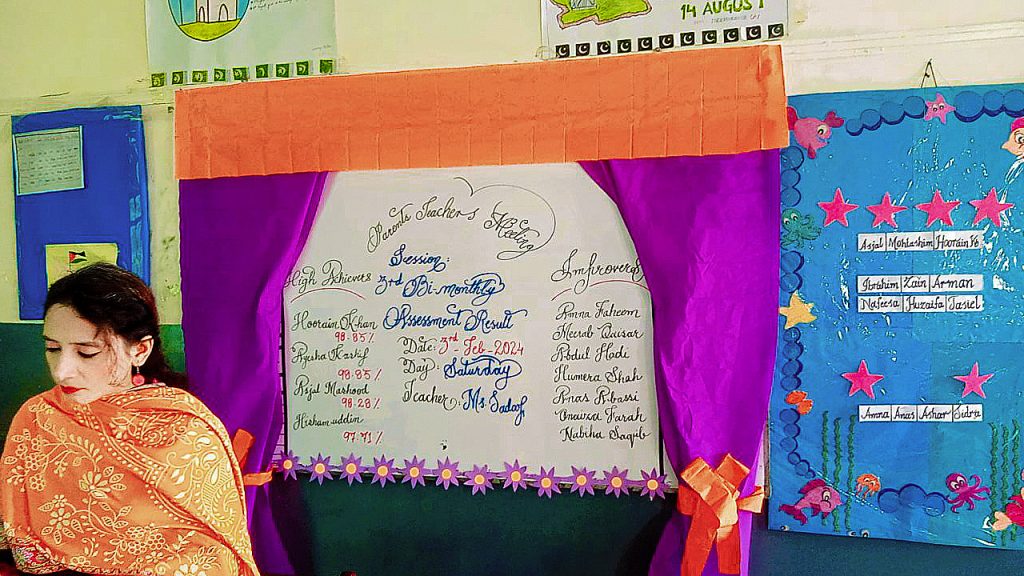 14 AUGUST
Parents Teacher's Meeting
Session:
3rd Bi-monthly
Assessment Result
Date: 3rd-Feb-2024
Day: Saturday
Teacher: Ms. Sadaf
High Achievers
Hoorain Khan
98.85%
Ayesha Kashif
98.85%
Rijal Mashood
98.28%
Hishamuddin
97.71%
Improvers
Amna Faheem
Meerab Qaisar
Abdul Hadi
Humera Shah
Anas Abassi
Unaiza Farah
Nabiha Saqib
Asjal Mohtashim Hoorain
Ibrahim Zain Arman
Nafeesa Huzaifa Jasiel
Amna Anas Ashar Sidra